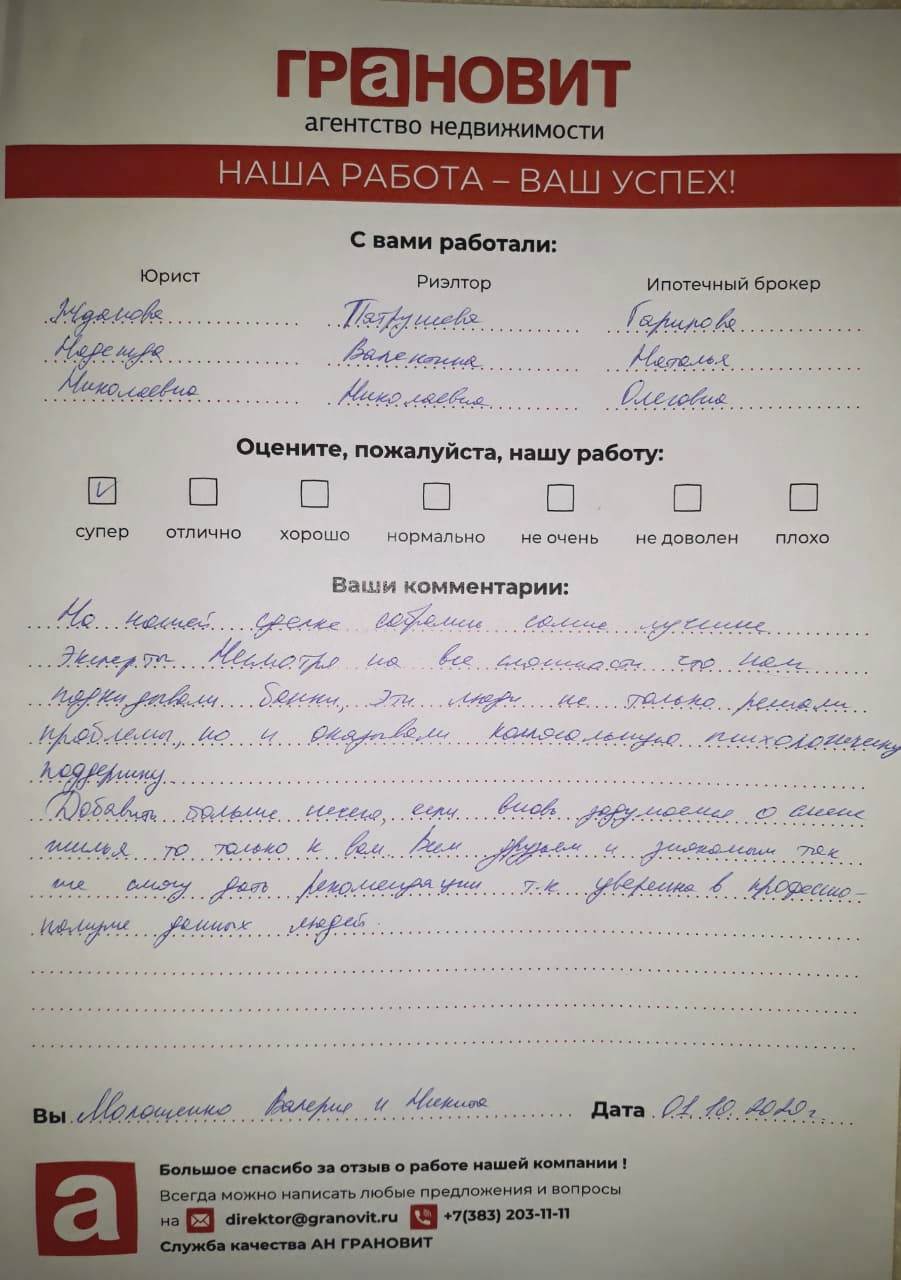 ГРаНОВИТ
агентство недвижимости
НАША РАБОТА – ВАШ УСПЕХ!
С вами работали:
Юрист Риэлтор Ипотечный брокер
Жданова Патрушева Гарипова
Надежда Валентина Наталья
Николаевна Николаевна Олеговна
Оцените, пожалуйста, нашу работу:
супер отлично хорошо нормально не очень не доволен плохо
Ваши комментарии:
На нашей сделке собрались самые лучшие
Эксперты. Несмотря на все что нам
подкидывали банки, эти люди не только решали
проблемы, но и оказывали колоссальную психологическую
поддержку
Добавить больше нечего, если вновь задумаемся о смене
жилья то только к вам. Всем друзьям и знакомым так
же смогу дать рекомендации т.к уверенна в професио-
нализме данных людей.
Вы Малашенко Валерия и Никита Дата 01.10.2020г.
а
Большое спасибо за отзыв о работе нашей компании !
Всегда можно написать любые предложения и вопросы
на direktor@granovit.ru +7(383) 203-11-11
Служба качества АН ГРАНОВИТ